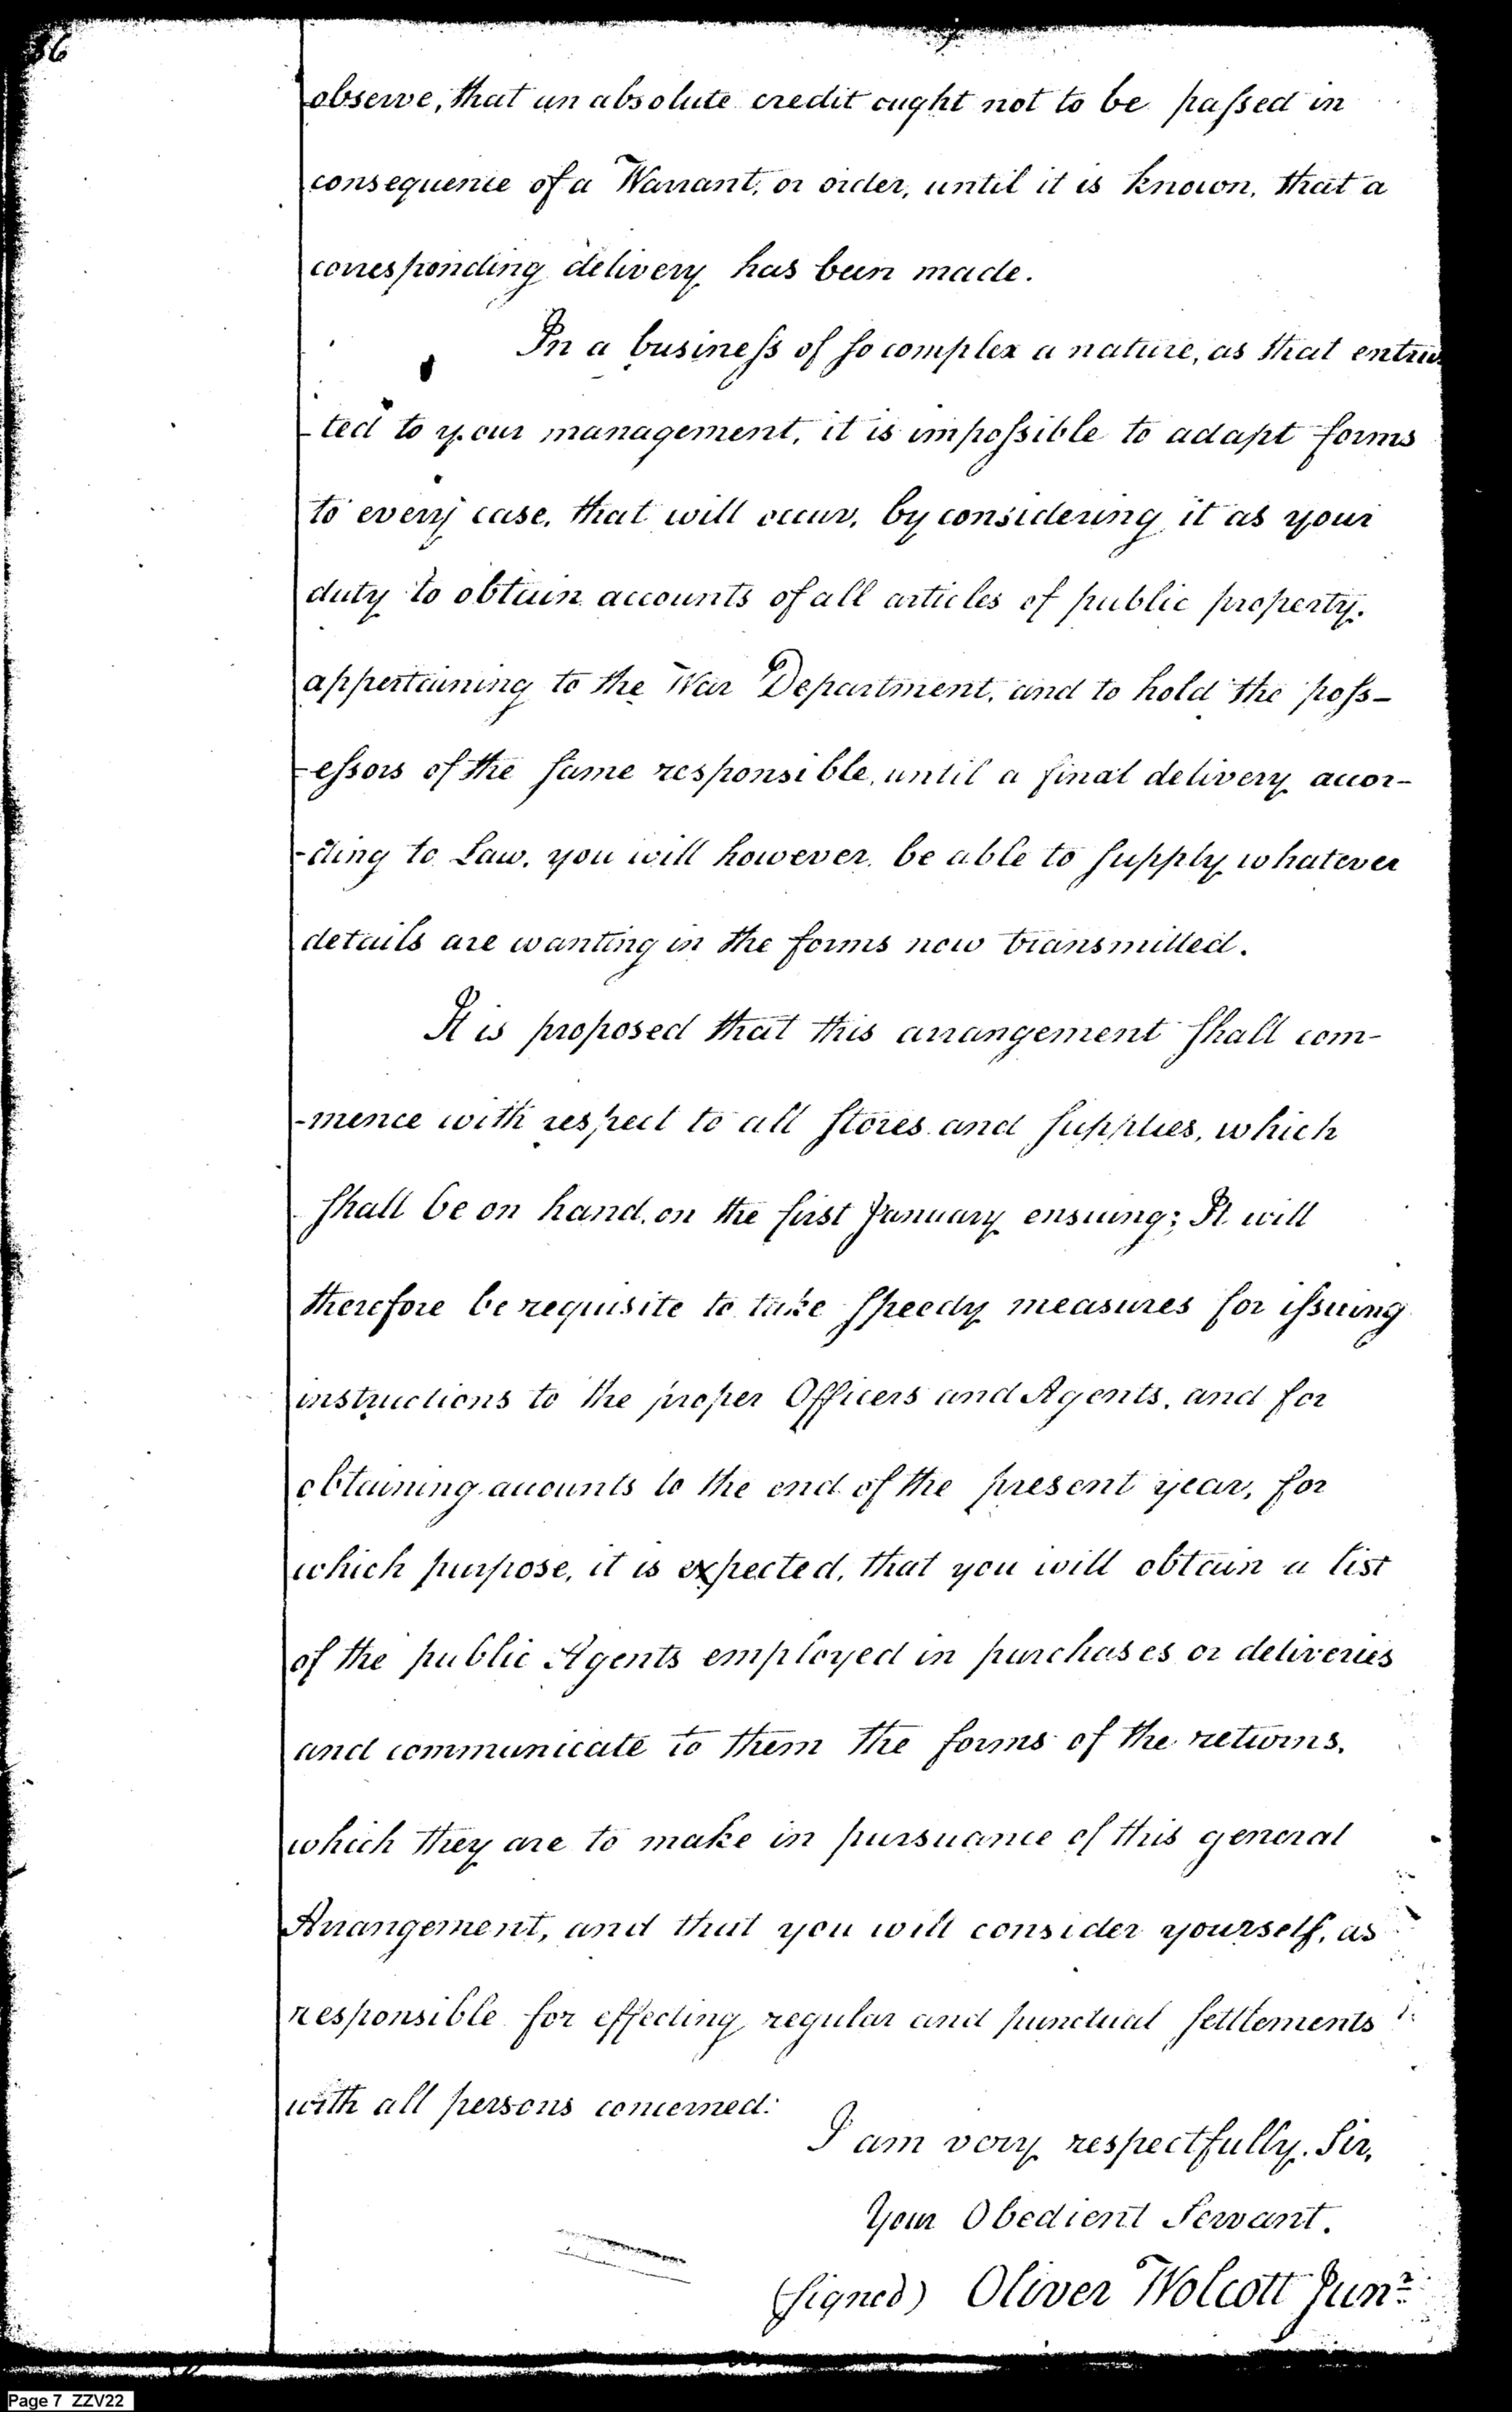 36
observe, that an absolute credit ought not to be paſsed in
consequence of a Warrant, or order, until it is known, that a
corresponding delivery has been made.
In a busineſs of ſo complex a nature, as that entrus
-ted to your management, it is impoſsible to adapt forms
to every case, that will occur, by considering it as your
duty to obtain accounts of all articles of public property,
appertaining to the War Department, and to hold the poſs-
-eſsors of the ſame responsible, until a final delivery accor-
-ding to Law, you will however, be able to ſupply whatever
details are wanting in the forms now transmitted.
It is proposed that this arrangement ſhall com-
-mence with respect to all ſtores and ſupplies, which
ſhall be on hand, on the first January ensuing; It will
therefore be requisite to take ſpeedy measures for iſsuing
instructions to the proper Officers and Agents, and for
obtaining accounts to the end of the present year, for
which purpose, it is expected, that you will obtain a list
of the public Agents employed in purchases or deliveries
and communicate to them the forms of the returns,
which they are to make in pursuance of this general
Arrangement, and that you will consider yourself, as
responsible for effecting regular and punctual ſettlements
with all persons concerned.
I am very respectfully, Sir,
Your Obedient Servant.
(ſigned) Oliver Wolcott Junr
Page 7 ZZV22